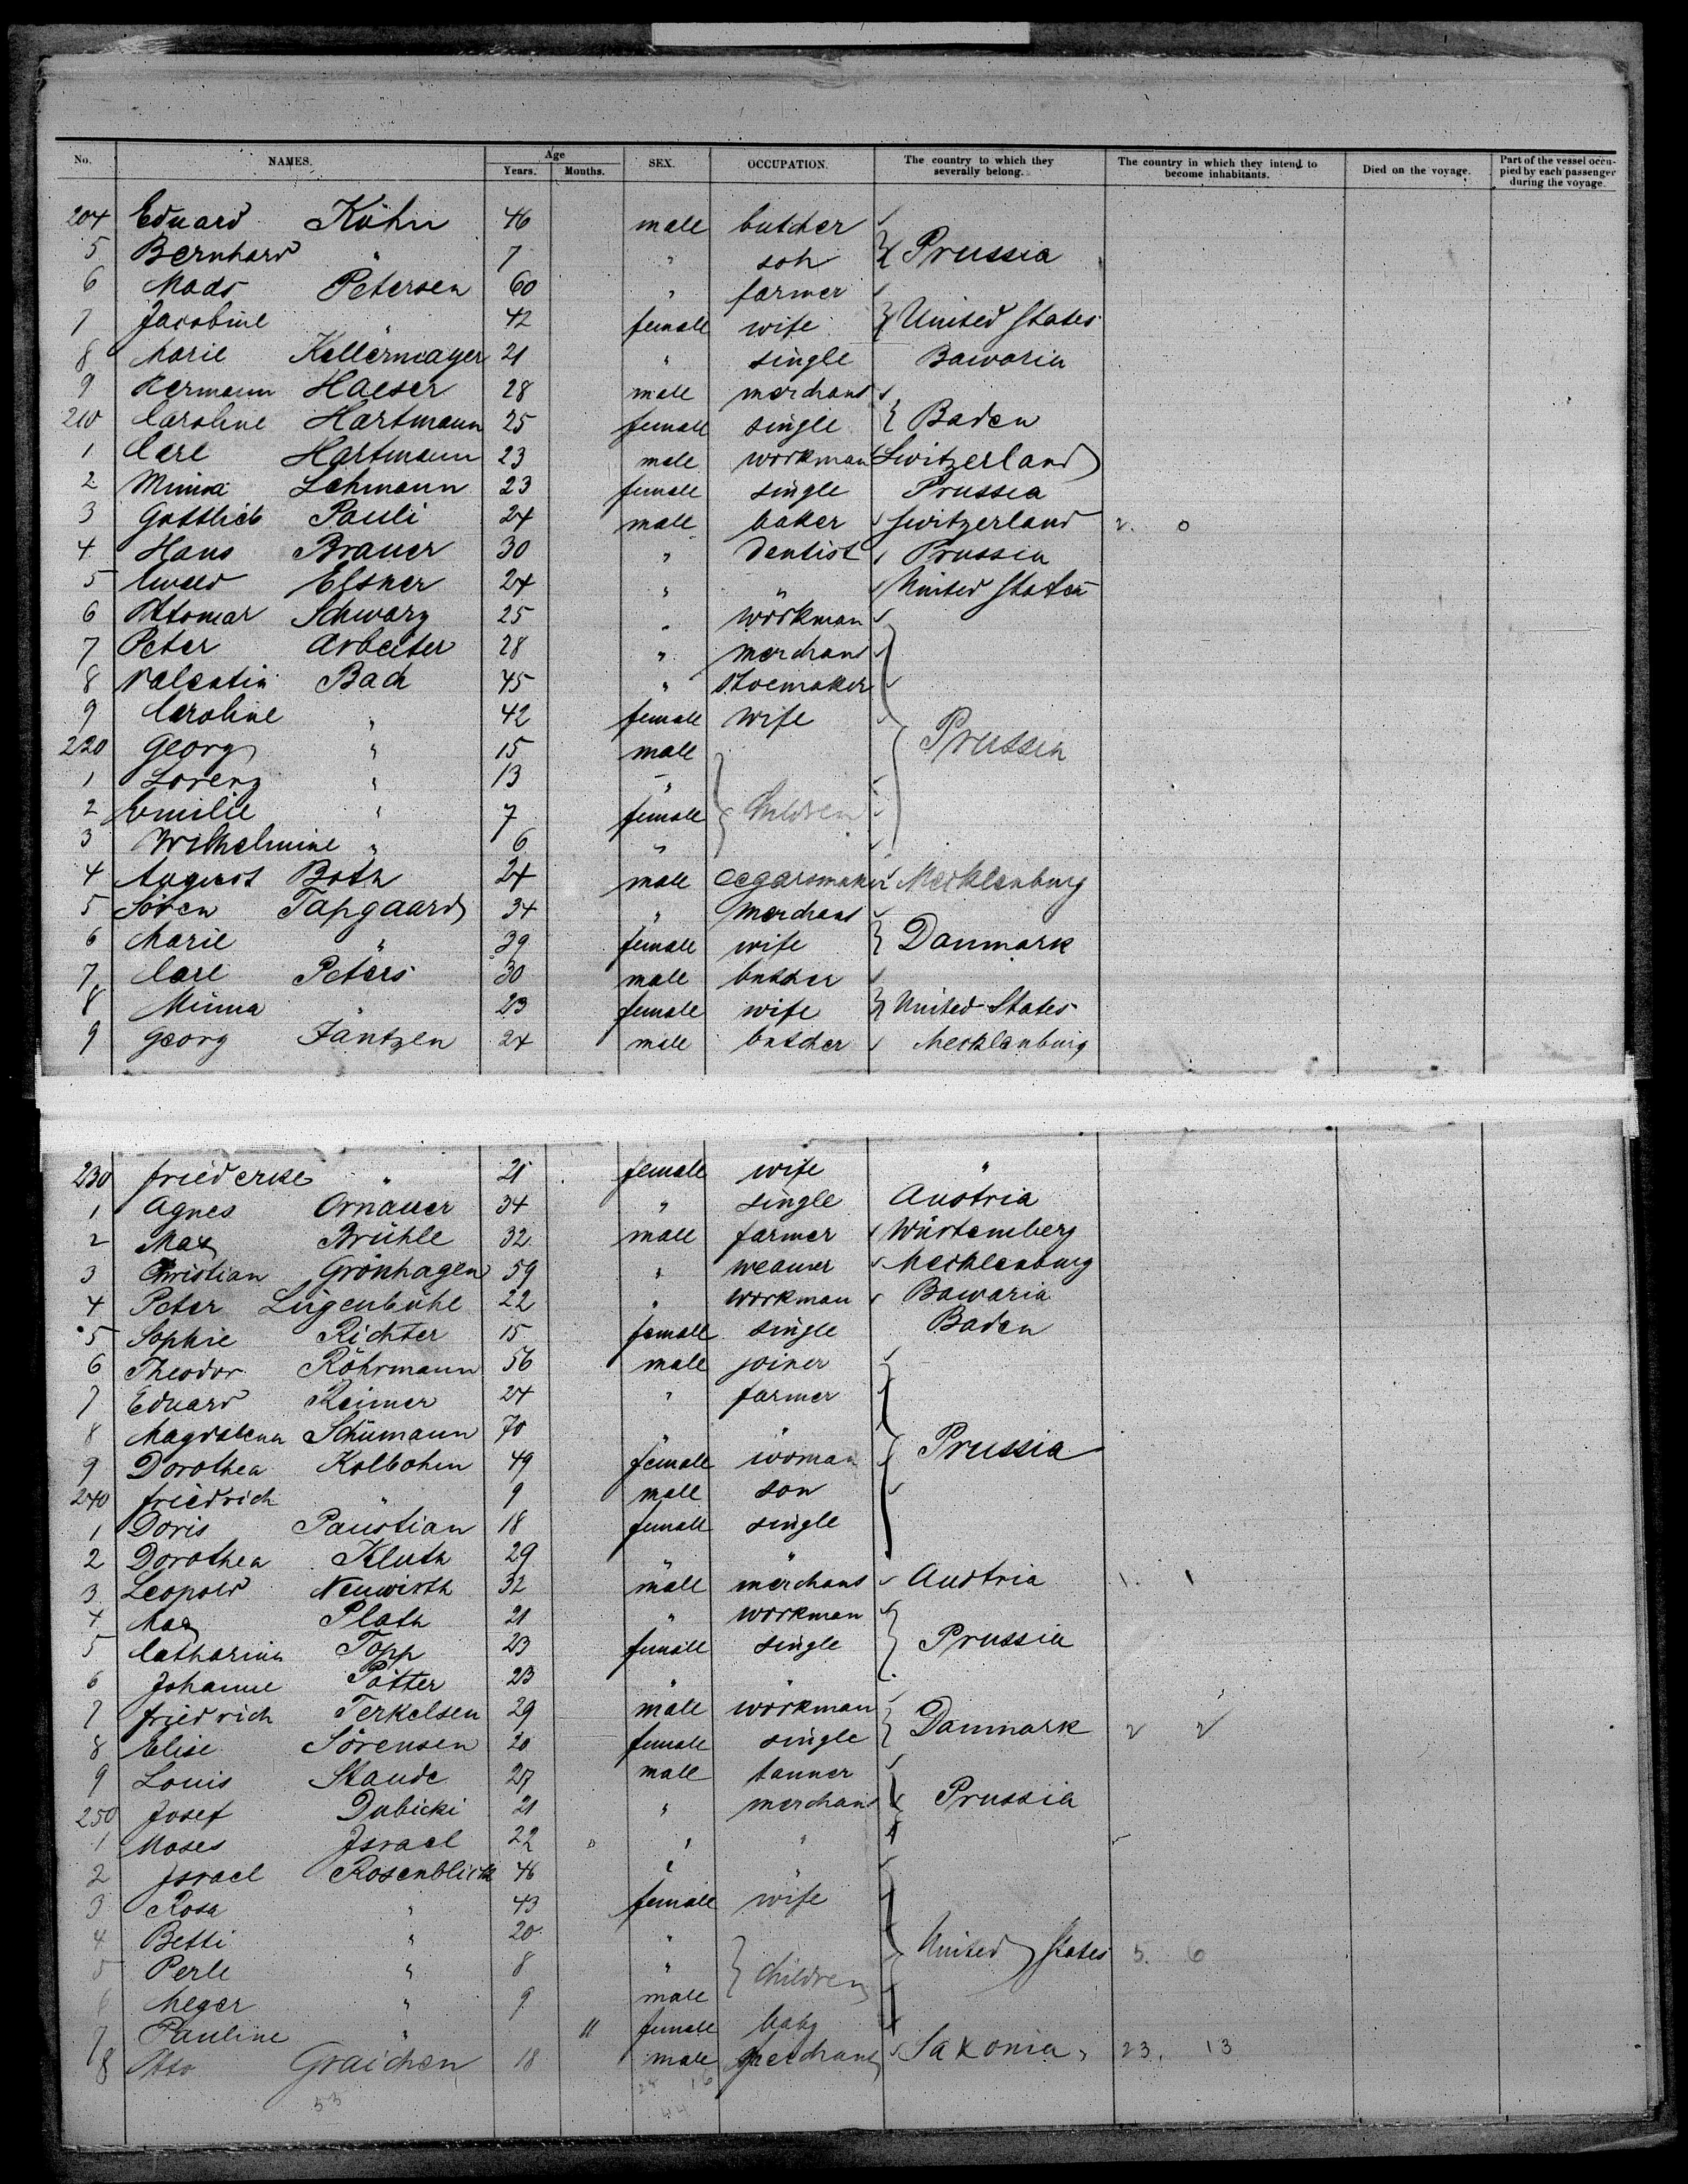 No. NAMES. Age Years. Months. SEX. OCCUPATION. The country to which they severally belong. The country in which they intend to become inhabitants. Died on the voyage. Part of the vessel occupied by each passenger during the voyage.
204 Eduard Köhn 46 male butcher
5 Bernhard " 7 " son } Prussia
6 Mads Petersen 60 " farmer
7 Jacobine " 42 female wife } United States
8 Marie Kellermayer 21 " single Bawaria
9 Hermann Haeser 28 male merchant
210 Caroline Hartmann 25 female single } Baden
1 Carl Hartmann 23 male workman Switzerland
2 Minna Lehmann 23 female single Prussia
3 Gottlieb Pauli 24 male baker Switzerland 2. 0
4 Hans Brauer 30 " dentist Prussia
5 Ewald Elsner 24 " " United States
6 Ottomar Schwarz 25 " workman
7 Peter Arbeiter 28 " merchant
8 Valentin Bach 45 " shoemaker
9 Caroline " 42 female wife
220 Georg " 15 male } Prussia
1 Lorenz " 13 "
2 Emilie " 7 female } Children
3 Wilhelmine " 6 "
4 August Both 24 male cegarsmaker Mecklenburg
5 Sören Tapgaard 34 " merchant
6 Marie " 39 female wife } Danmark
7 Carl Peters 30 male butcher
8 Minna " 23 female wife } United States
9 Georg Jäntzen 24 male butcher Mecklenburg
230 Friederke " 21 female wife "
1 Agnes Ornauer 34 " single Austria
2 Max Brühle 32 male farmer Würtemberg
3 Christian Grönhagen 59 " weawer Mecklenburg
4 Peter Lügenbühl 22 " workman Bawaria
5 Sophie Richter 15 female single Baden
6 Theodor Röhrmann 56 male joiner
7 Eduard Reimer 24 " farmer
8 Magdalena Schümann 70 " "
9 Dorothea Kolbohm 49 female woman } Prussia
240 Friedrich " 9 male son
1 Doris Paustian 18 female single
2 Dorothea Kluth 29 " "
3 Leopold Neuwirth 32 male merchant Austria 1. 1
4 Max Plath 21 " workman
5 Catharina Topp 23 female single } Prussia
6 Johanne Pötter 23 " "
7 Friedrich Terkelsen 29 male workman
8 Elise Sörensen 20 female single } Danmark 2 2
9 Louis Staude 27 male tanner
250 Josef Dubicki 21 " merchant } Prussia
1 Moses Israel 22 " "
2 Israel Rosenblick 46 " "
3 Rosa " 43 female wife
4 Betti " 20 "
5 Perle " 8 " } children } United States 5. 6
6 Meger " 9 male
7 Pauline " 11 female baby
8 Otto Graichen 18 male merchant Saxonia, 23. 13
53 28 16
44